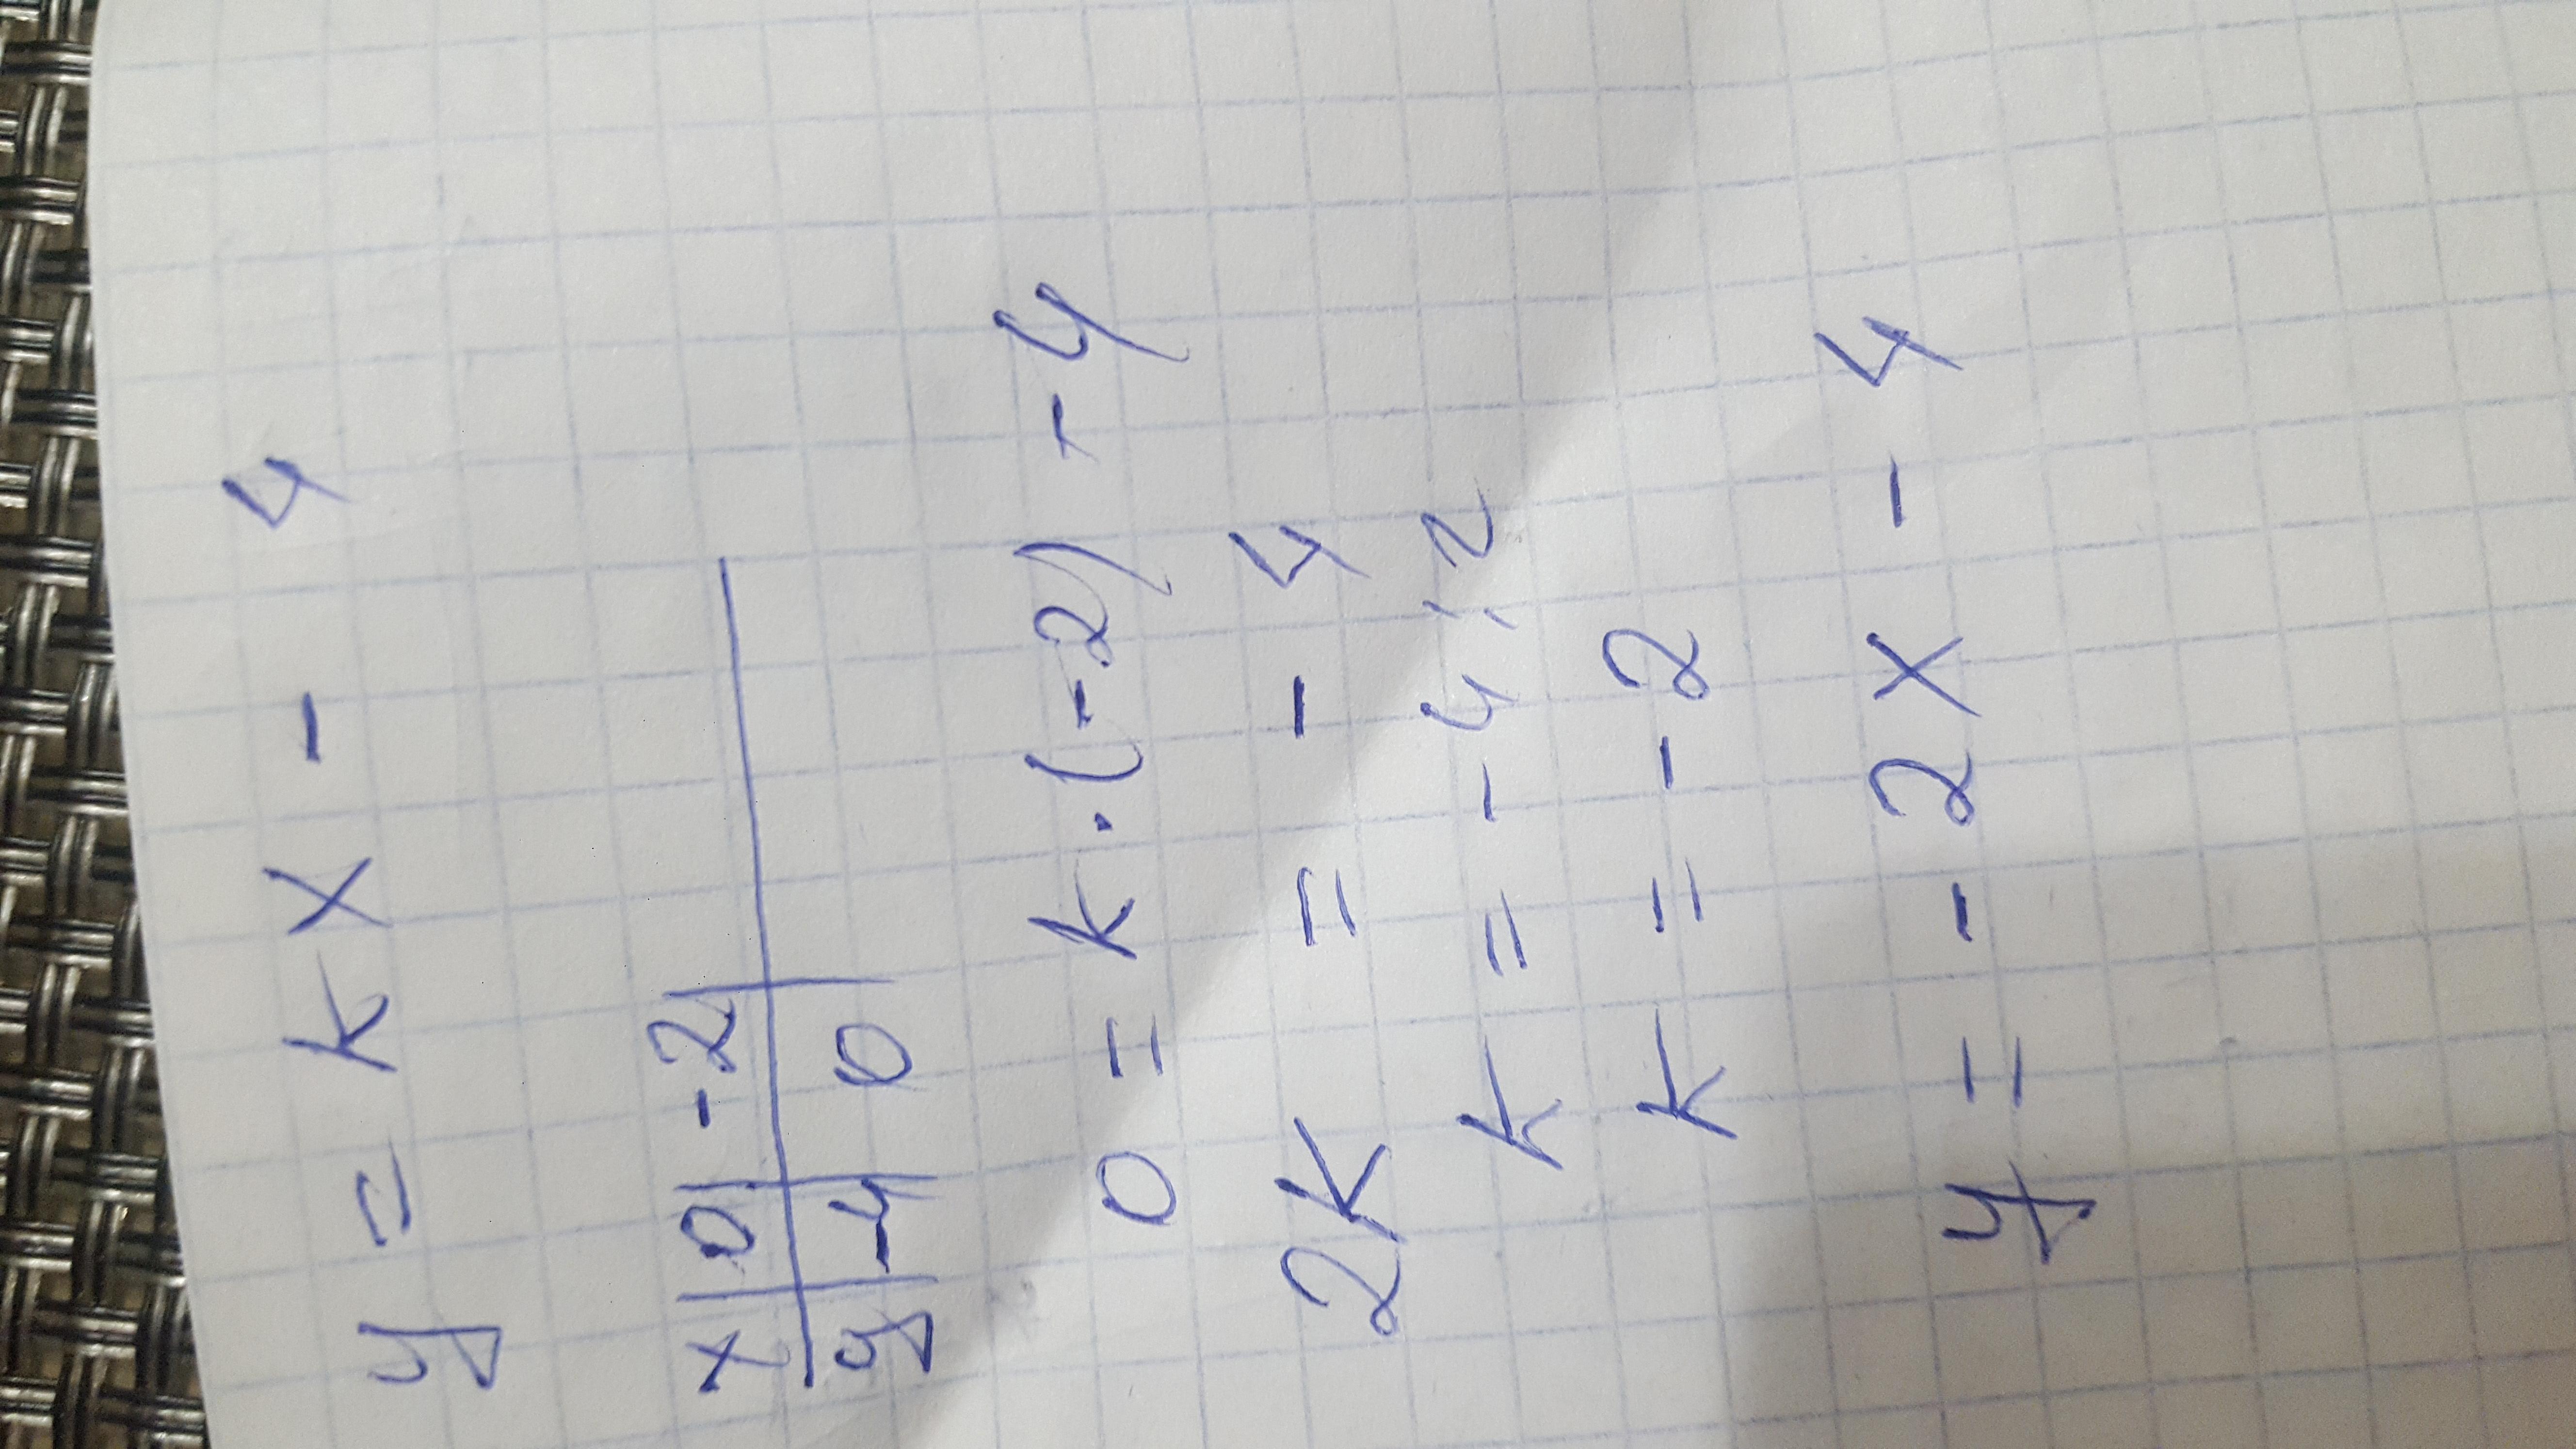 y = kx - 4
x | 0 | -2
y | -4 | 0
0 = k·(-2) - 4
2k = -4
k = -4:2
k = -2
y = -2x - 4